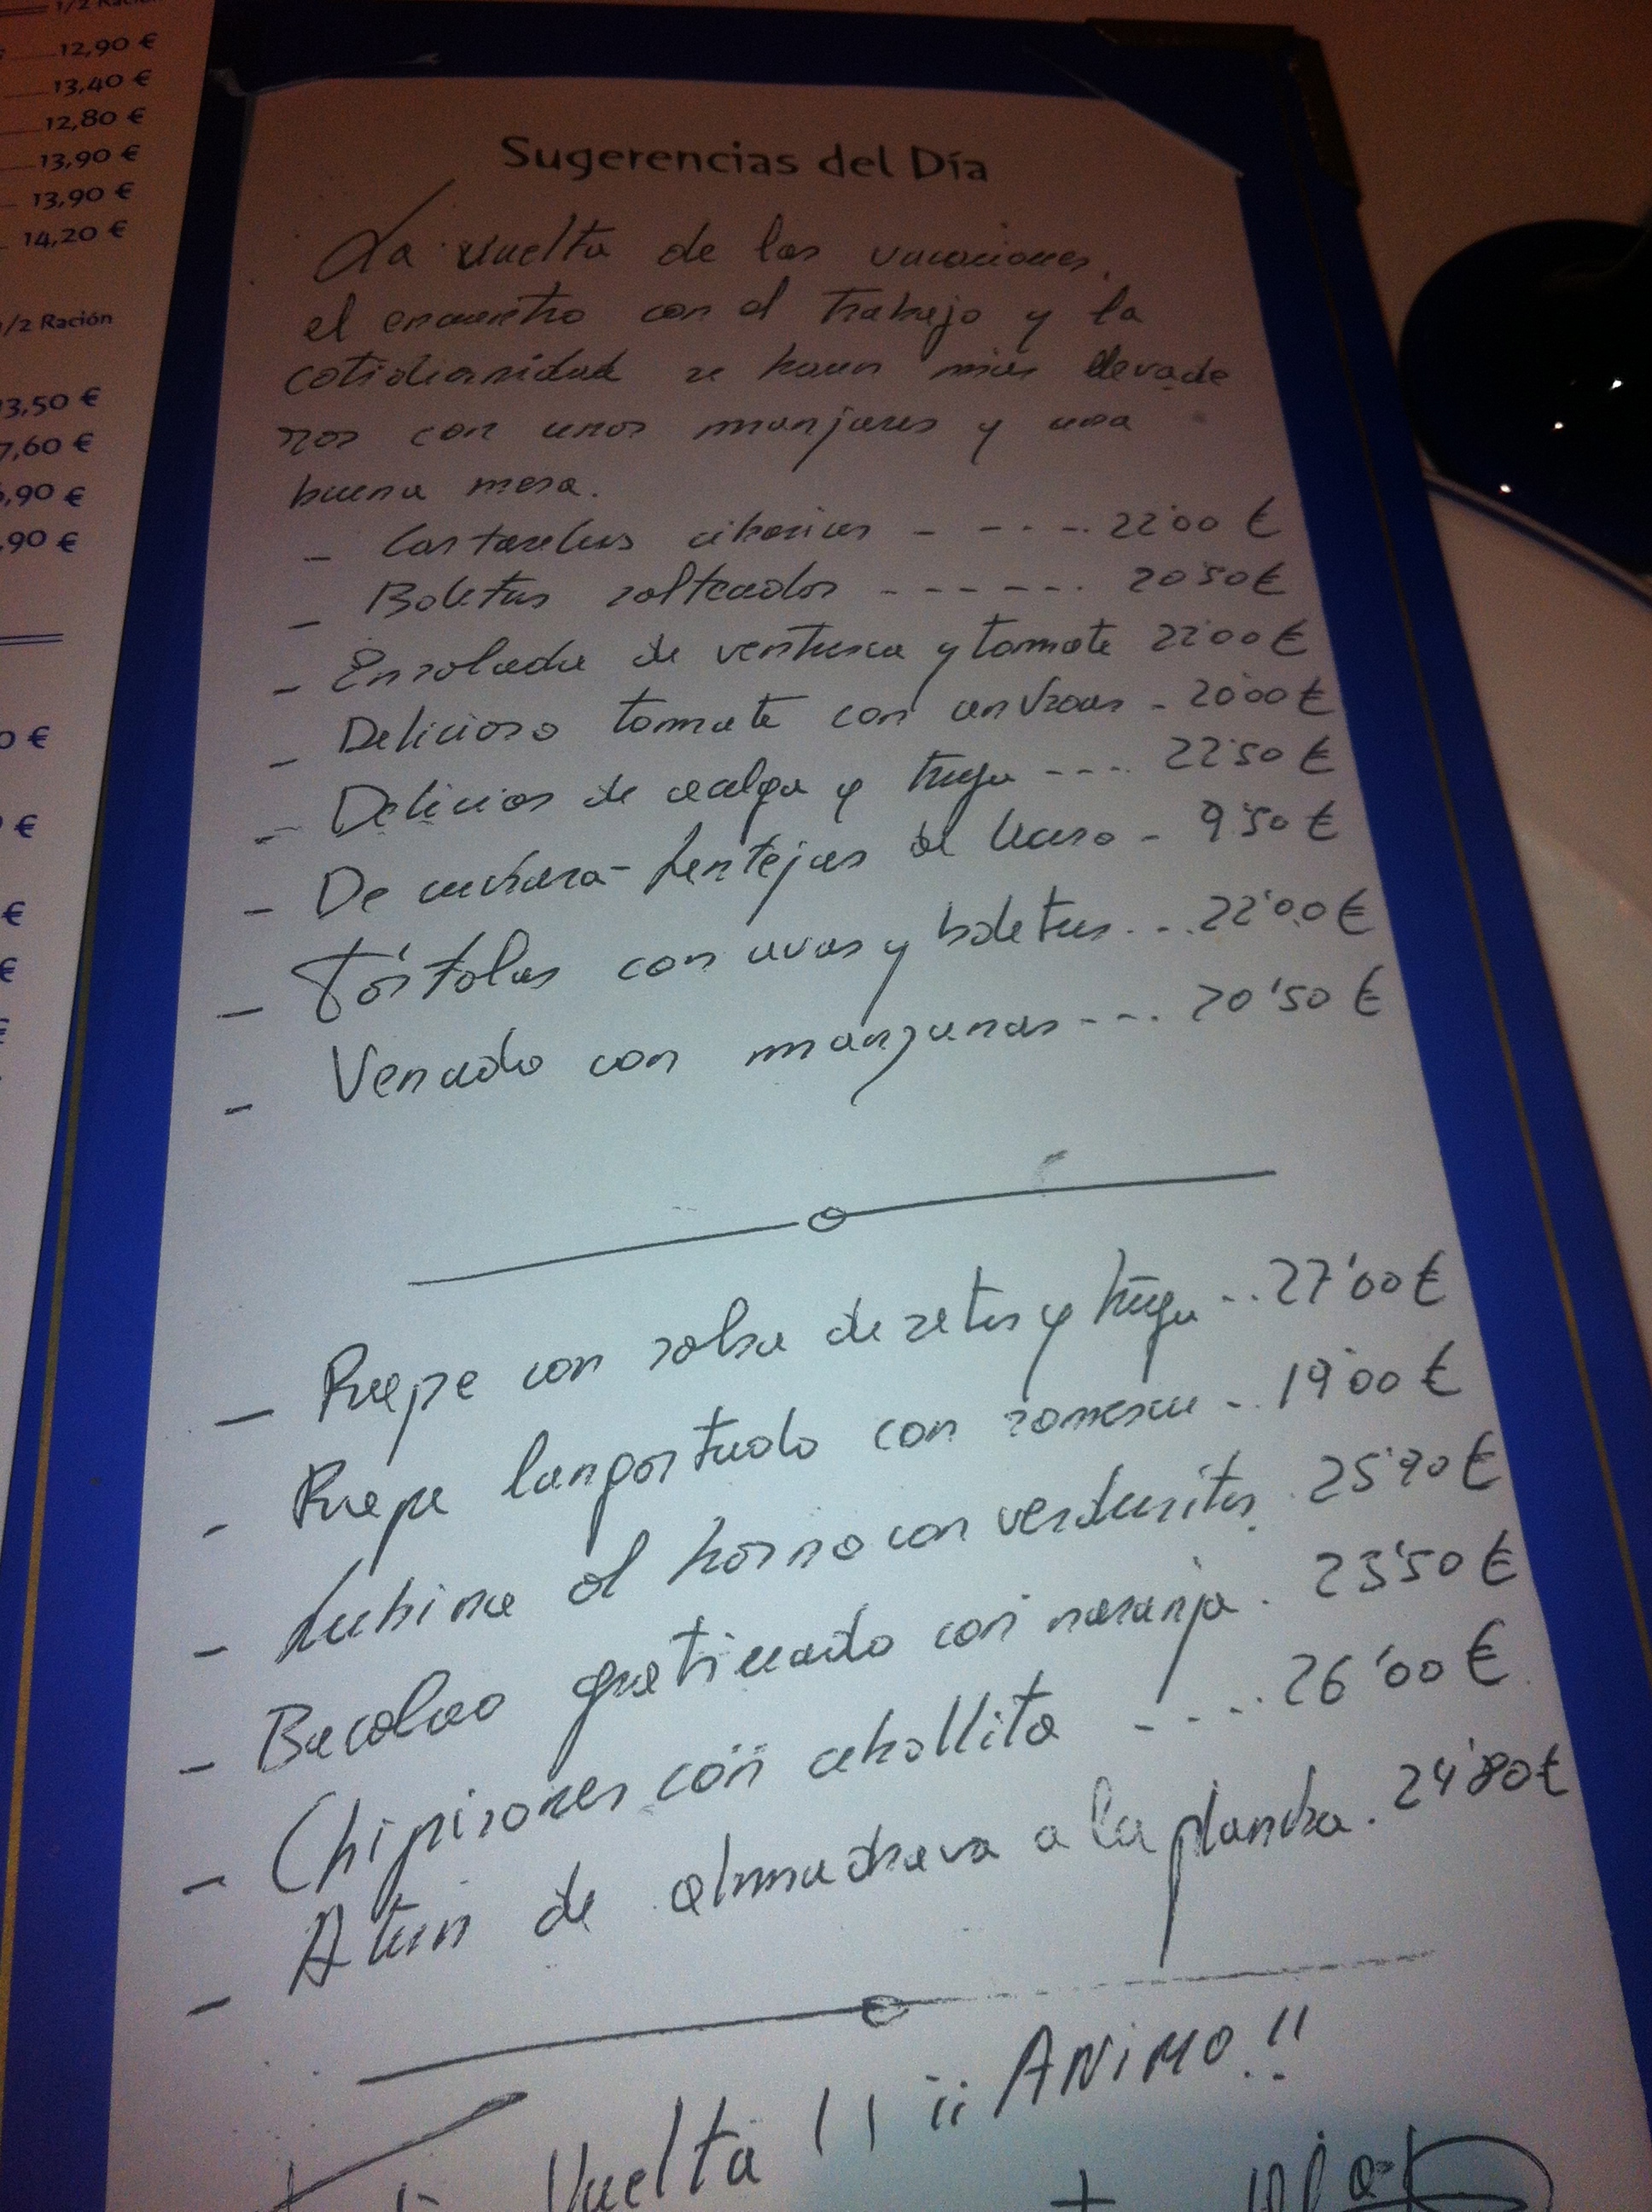 1/2 Ració
12,90 €
13,40 €
12,80 €
13,90 €
13,90 €
14,20 €
1/2 Ración
13,50 €
7,60 €
,90 €
,90 €
0 €
€
€
€
Sugerencias del Día
La vuelta de las vacaciones,
el encuentro con el trabajo y la
cotidianidad se hacen más llevade
ros con unos manjares y una
buena mesa.
- Costarelas ibericas - - - - . 22'00 €
- Boletus salteados - - - - - - . 20'50 €
- Ensalada de ventresca y tomate 22'00 €
- Delicioso tomate con anchoas - 20'00 €
- Delicias de y trufa - - - . 22'50 €
- De cuchara - Lentejas de - 9'50 €
- Tórtolas con uvas y boletus . . . 22'00 €
- Venado con manzanas - - - . 20'50 €
- Rape con salsa de setas y trufa - . . 27'00 €
- Rape langostado con romescu - . 19'00 €
- Lubina al horno con verduritas . 25'90 €
- Bacalao gratinado con naranja . 23'50 €
- Chipirones con cebollita - - - - . 26'00 €
- Atun de almadrava a la plancha . 24'80 €
Vuelta !! ¡¡ ANIMO !!